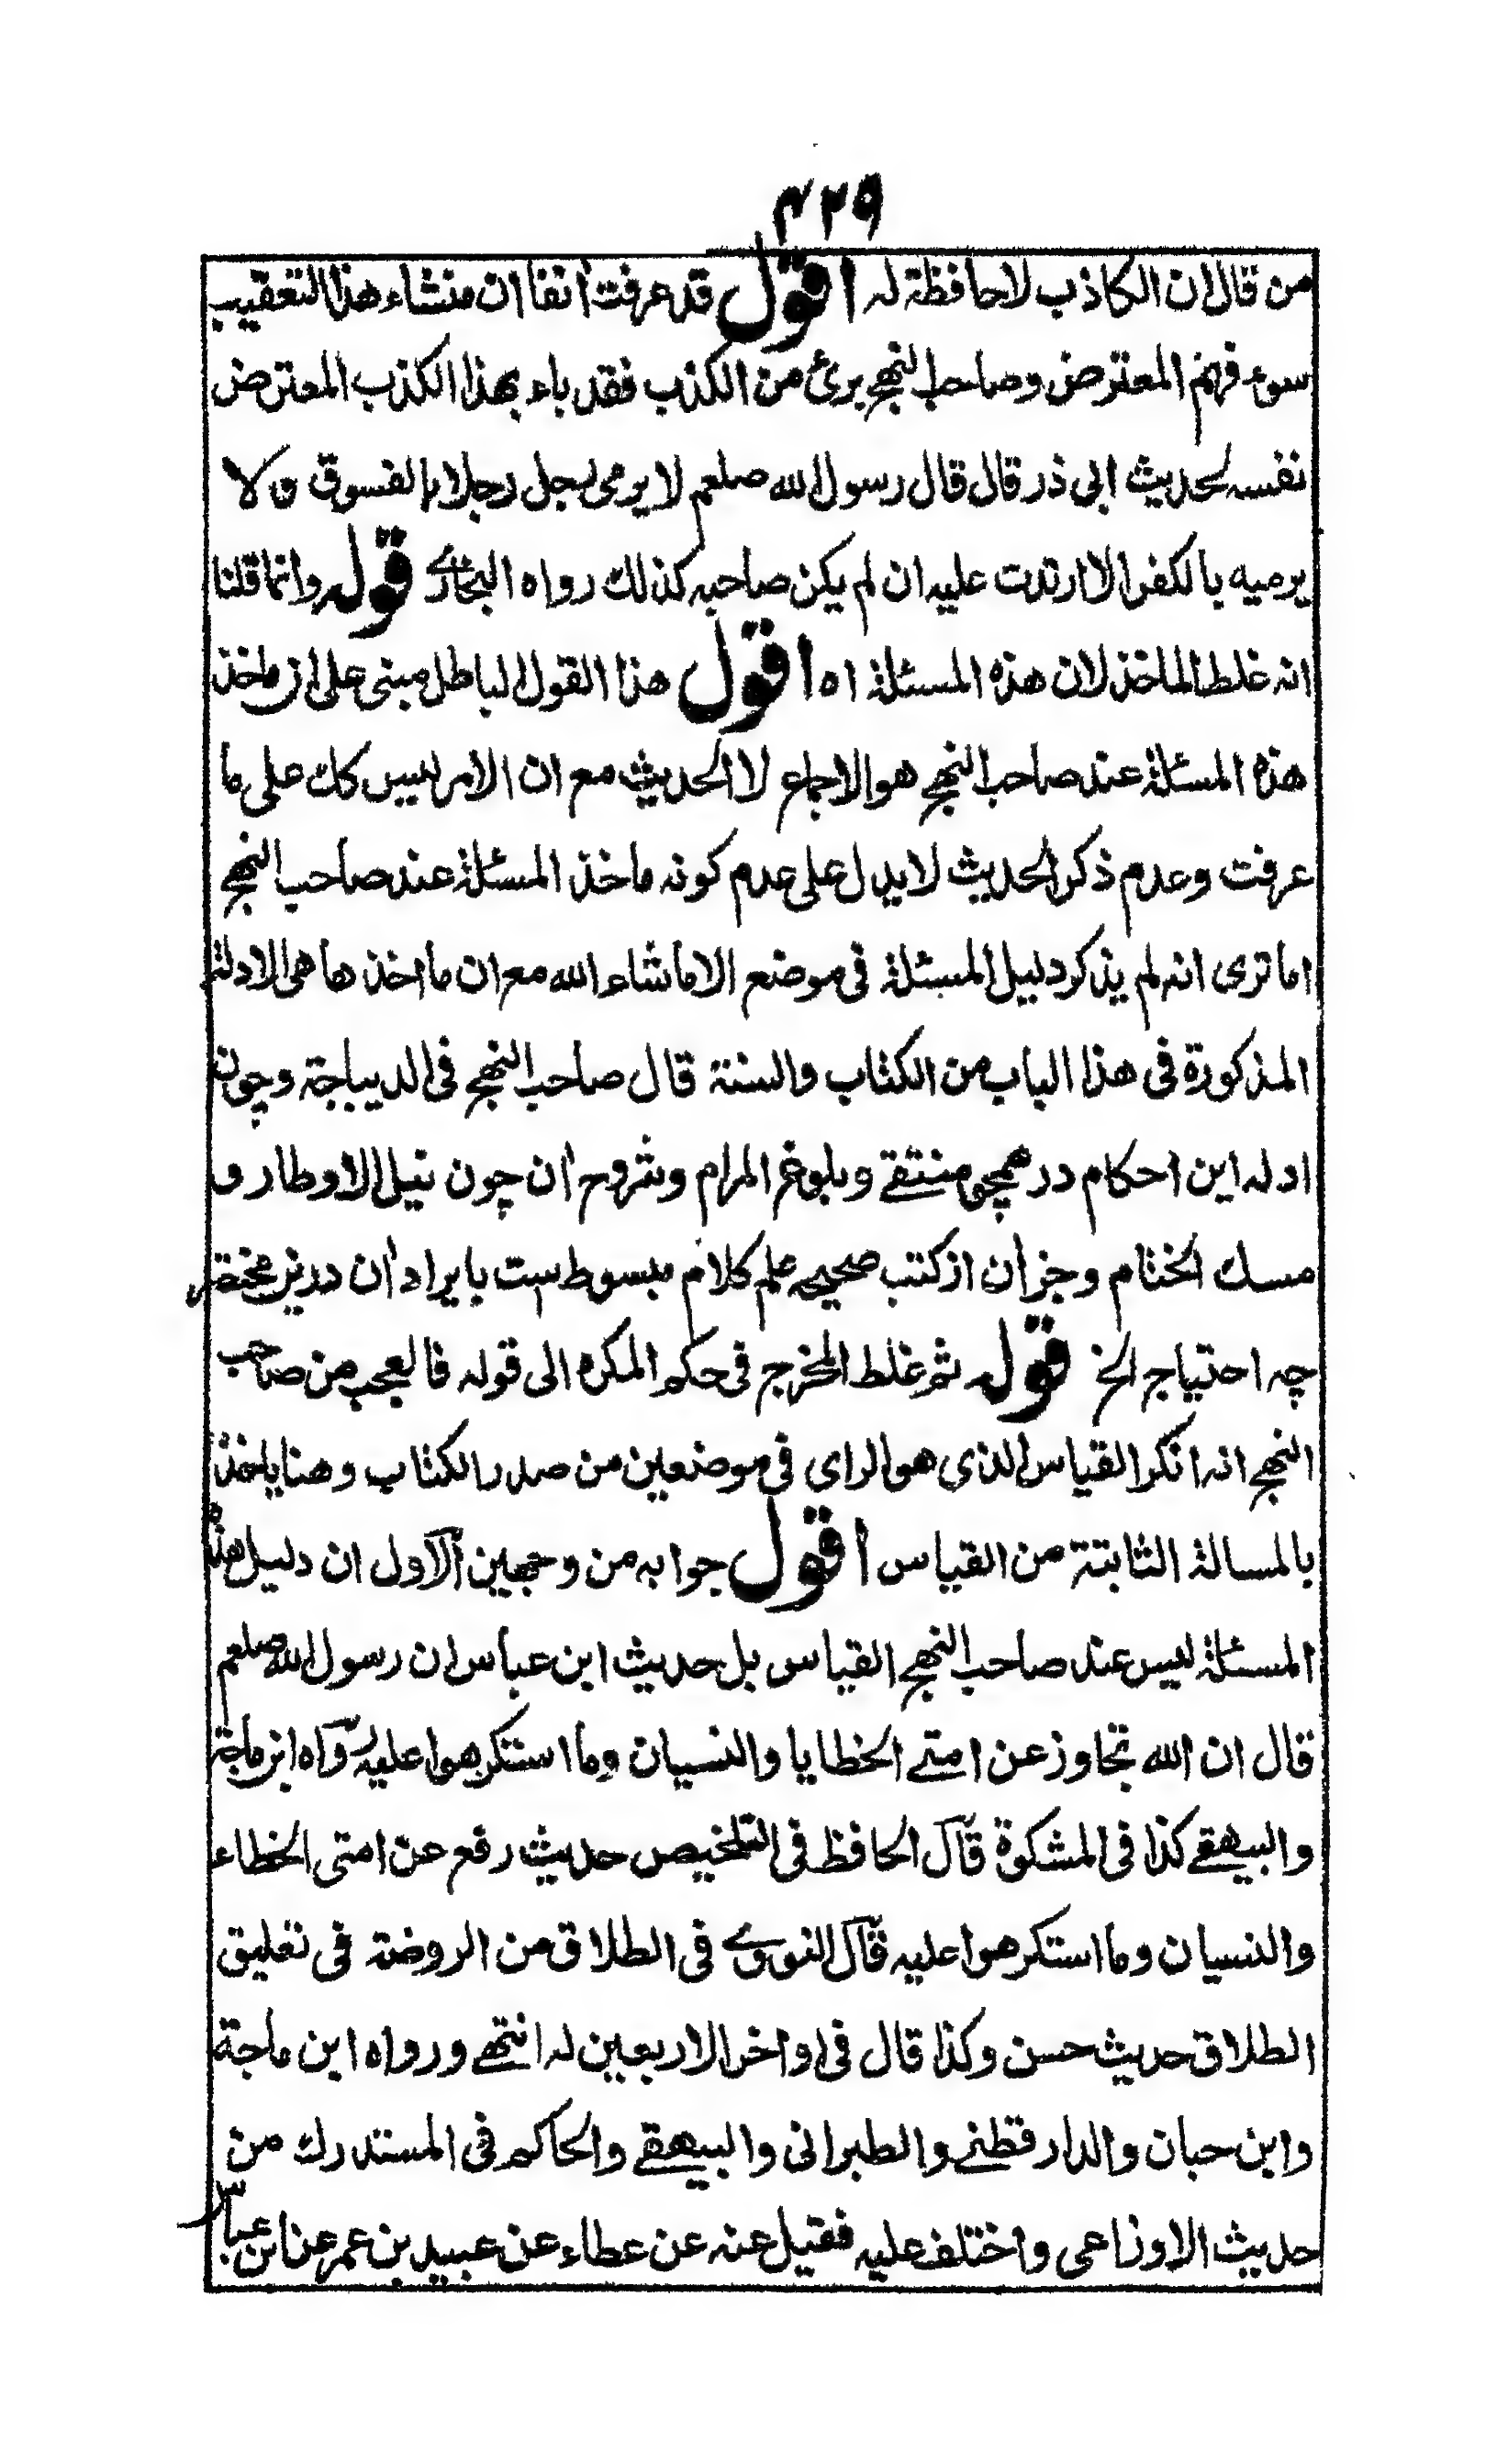 ۴۲۹
من قال ان الكاذب لا حافظة له اقول قد عرفت اٰنفا ان منشاء هذا التعقيب
سوء فهم المعترض وصاحب النهج برئ من الكذب فقد باء بهذا الكذب المعترض
نفسه لحديث ابى ذر قال قال رسول الله صلعم لا يرمى رجل رجلا بالفسوق ولا
يرميه بالكفر الا ارتدت عليه ان لم يكن صاحبه كذلك رواه البخارى قوله وانما قلنا
انه غلط الماخذ لان هذه المسئلة اه اقول هذا القول الباطل مبنى على ان ماخذ
هذه المسئلة عند صاحب النهج هو الاجماع لا الحديث مع ان الامر ليس كك على ما
عرفت وعدم ذكر الحديث لا يدل على عدم كونه ماخذ المسئلة عند صاحب النهج
اما ترى انه لم يذكر دليل المسئلة فى موضع الا ما شاء الله مع ان ماخذها هى الادلة
المذكورة فى هذا الباب من الكتاب والسنة قال صاحب النهج فى الديباجة وچون
ادله اين احكام در همچو منتقے وبلوغ المرام وشروح اٰن چون نيل الاوطار و
مسك الختام وجز اٰن از كتب صحيحه علم كلام مبسوط ست بايراد اٰن درين مختصر
چه احتياج الخ قوله ثم غلط المخرج فى حكم المكره الى قوله فالعجب من صاحب
النهج انه انكر القياس الذى هو الراى فى موضعين من صدر الكتاب وهنا ياخذ
بالمسالة الثابتة من القياس اقول جوابه من وجهين الاول ان دليل هذه
المسئلة ليس عند صاحب النهج القياس بل حديث ابن عباس ان رسول الله صلعم
قال ان الله تجاوز عن امتے الخطايا والنسيان وما استكرهوا عليه رواه ابن ماجة
والبيهقے كذا فى المشكوة قال الحافظ فى التلخيص حديث رفع عن امتى الخطاء
والنسيان وما استكرهوا عليه قال النووے فى الطلاق من الروضة فى تعليق
الطلاق حديث حسن وكذا قال فى اواخر الاربعين له انتهے ورواه ابن ماجة
وابن حبان والدارقطنے والطبرانى والبيهقے والحاكم فى المستدرك من
حديث الاوزاعى واختلف عليه فقيل عنه عن عطاء عن عبيد بن عمر عن ابن عباس